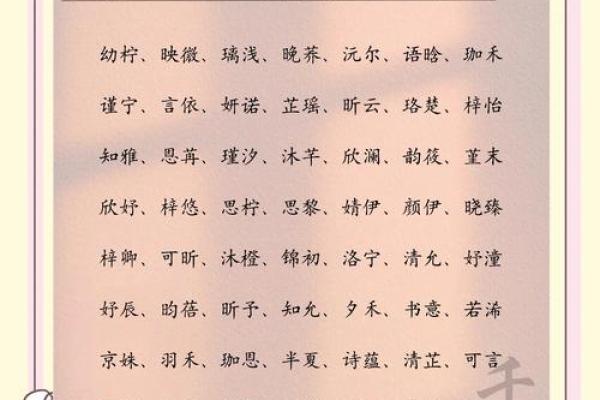 幼柠、映微、璃浅、晚荞、沅尔、语晗、珈禾
谨宁、言依、妍诺、芷瑶、昕云、珞楚、梓怡
知雅、恩苒、瑾汐、沐芊、欣澜、韵筱、堇末
欣妤、梓悠、思柠、思黎、婧伊、颜伊、晓臻
梓卿、可昕、沐橙、锦初、洛宁、清允、妤潼
妤辰、昀蓓、昕予、知允、夕禾、书意、若浠
京姝、羽禾、珈恩、半夏、诗蕴、清芷、可言